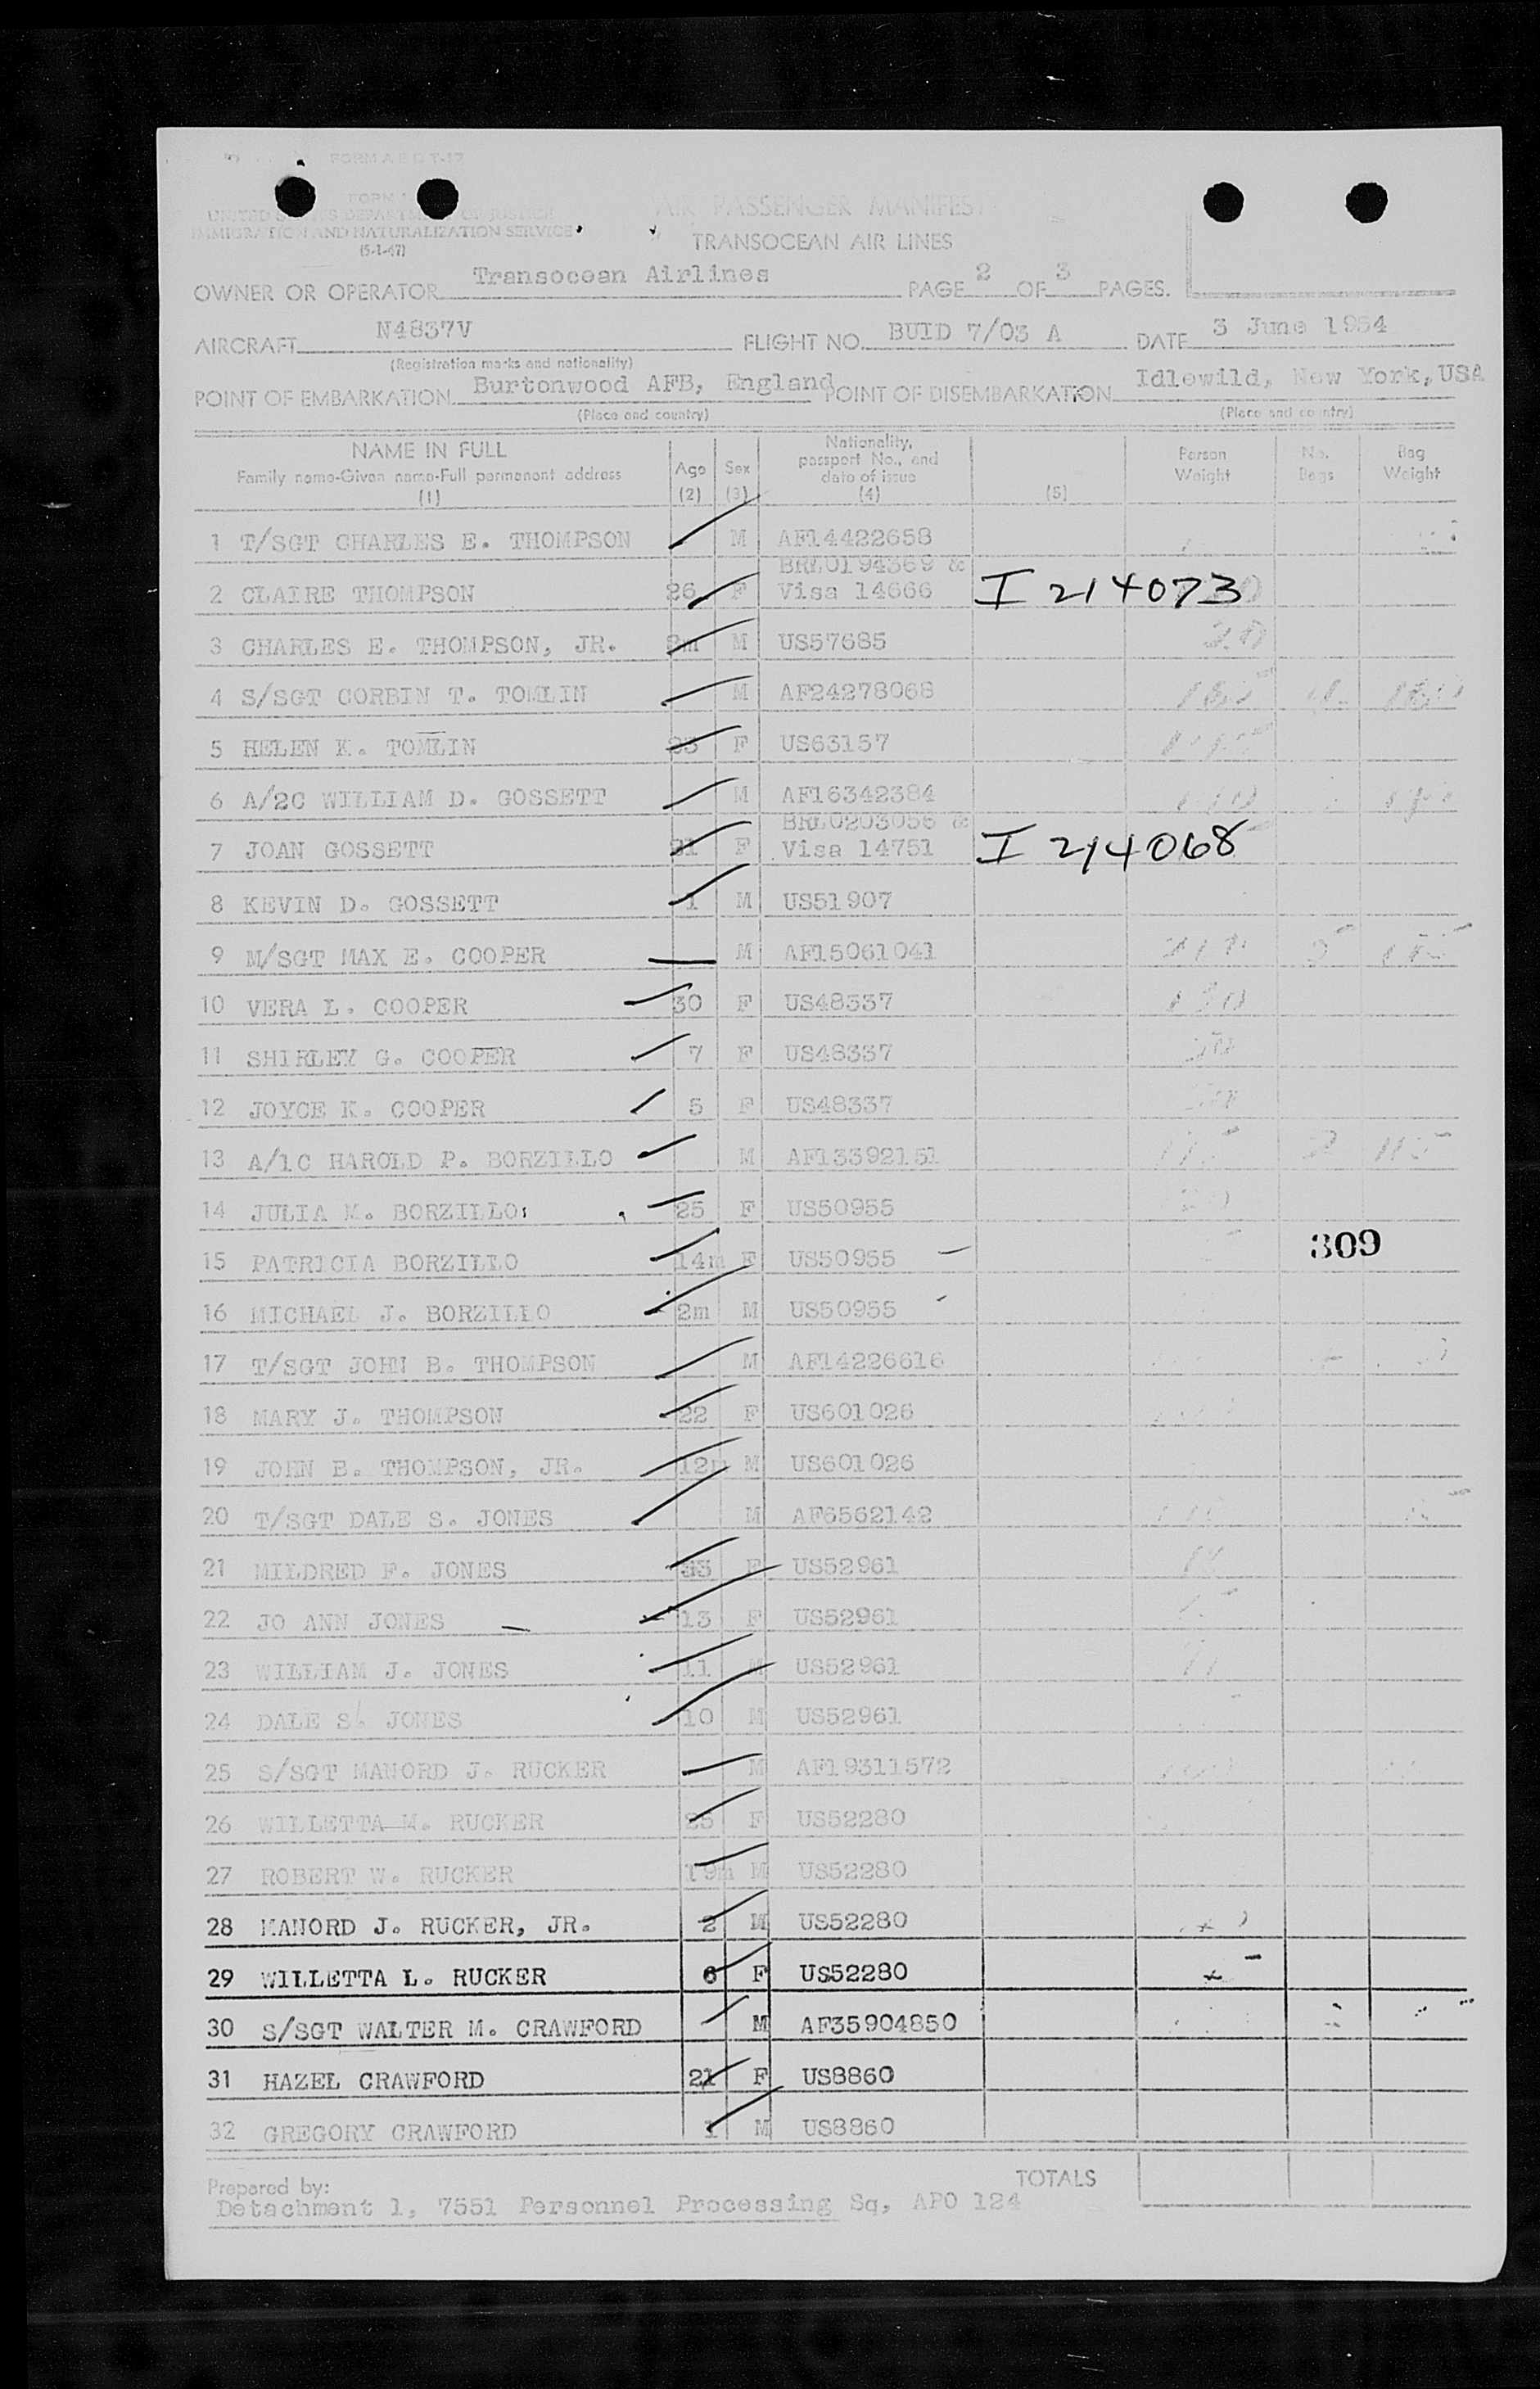 FORM A R D T-17
UNITED STATES DEPARTMENT OF JUSTICE
IMMIGRATION AND NATURALIZATION SERVICE
(5-1-47)
AIR PASSENGER MANIFEST
TRANSOCEAN AIR LINES
OWNER OR OPERATOR Transocean Airlines PAGE 2 OF 3 PAGES.
AIRCRAFT N4837V FLIGHT NO. BUID 7/03 A DATE 3 June 1954
(Registration marks and nationality)
POINT OF EMBARKATION Burtonwood AFB, England POINT OF DISEMBARKATION Idlewild, New York, USA
(Place and country) (Place and country)
NAME IN FULL
Family name-Given name-Full permanent address
(1)
Age
(2)
Sex
(3)
Nationality,
passport No., and
date of issue
(4)
(5)
Person
Weight
No.
Bags
Bag
Weight
1 T/SGT CHARLES E. THOMPSON M AF14422658
2 CLAIRE THOMPSON 26 F BRL0194369 & Visa 14666 I 214073
3 CHARLES E. THOMPSON, JR. M US57685 20
4 S/SGT CORBIN T. TOMLIN M AF24278068
5 HELEN K. TOMLIN 23 F US63157
6 A/2C WILLIAM D. GOSSETT M AF16342384
7 JOAN GOSSETT F BRL0203056 & Visa 14751 I 214068
8 KEVIN D. GOSSETT 1 M US51907
9 M/SGT MAX E. COOPER M AF15061041
10 VERA L. COOPER 30 F US48337
11 SHIRLEY G. COOPER 7 F US48337
12 JOYCE K. COOPER 5 F US48337
13 A/1C HAROLD P. BORZILLO M AF13392151 2 115
14 JULIA M. BORZILLO 25 F US50955
15 PATRICIA BORZILLO 14m F US50955
309
16 MICHAEL J. BORZILLO 2m M US50955
17 T/SGT JOHN B. THOMPSON M AF14226616
18 MARY J. THOMPSON 22 F US601026
19 JOHN B. THOMPSON, JR. 12m M US601026
20 T/SGT DALE S. JONES M AF6562142
21 MILDRED F. JONES 33 F US52961
22 JO ANN JONES 13 F US52961
23 WILLIAM J. JONES 11 M US52961
24 DALE S. JONES 10 M US52961
25 S/SGT MANORD J. RUCKER M AF19311572
26 WILLETTA M. RUCKER 25 F US52280
27 ROBERT W. RUCKER 19m M US52280
28 MANORD J. RUCKER, JR. 2 M US52280
29 WILLETTA L. RUCKER 6 F US52280
30 S/SGT WALTER M. CRAWFORD M AF35904850
31 HAZEL CRAWFORD 21 F US8860
32 GREGORY CRAWFORD 1 M US8860
TOTALS
Prepared by:
Detachment 1, 7551 Personnel Processing Sq, APO 124